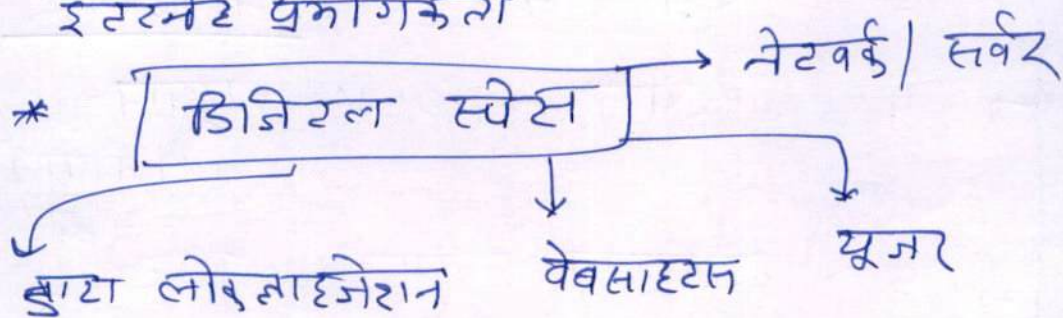 इंटरनेट प्रयोगकर्ता
* डिजिटल स्पेस → नेटवर्क / सर्वर
डाटा लोकलाइजेशन वेबसाइटस यूजर